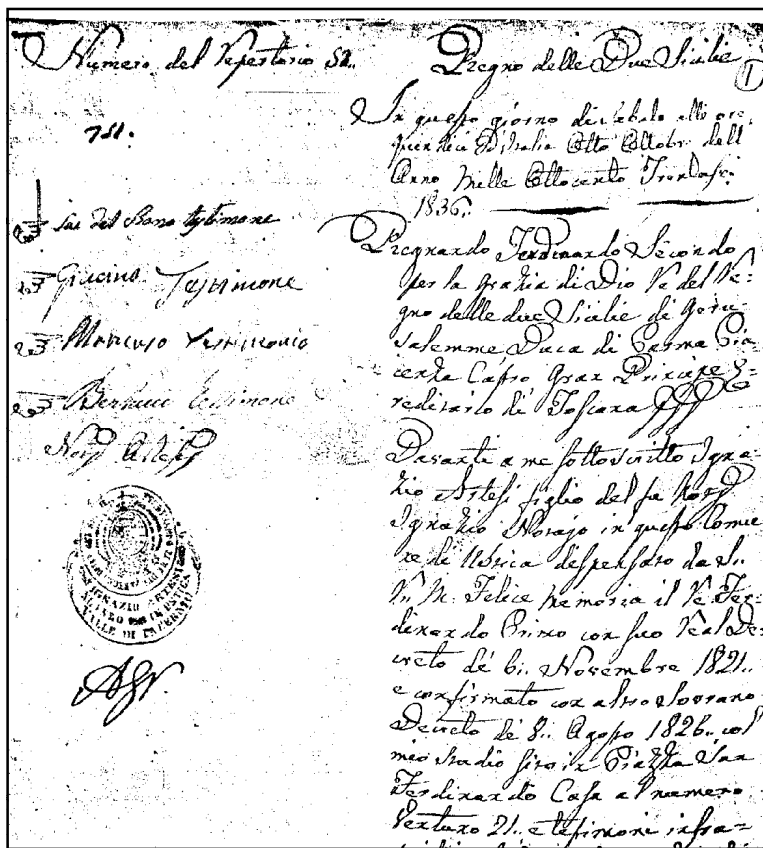 Numero del Repertorio 52..
751.
Sac. del Bono testimone
Giacino Testimone
Mancuso Testimonio
Bertucci Testimone
Not.r Artesi
IGNAZIO ARTESI
NOTARO IN USTICA
VALLE DI PALERMO
Regno delle Due Sicilie
1
In questo giorno di Sabato alli ore
quindici d'Italia Otto Ottobre dell
Anno Mille Ottocento Trentasei
1836..
Regnando Ferdinando Secondo
per la grazia di Dio Re del Re=
gno delle due Sicilie di Geru=
salemme Duca di Parma Pia=
cenza Castro Gran Principe E=
reditario di Toscana
Davanti a me sottoscritto Igna=
zio Artesi figlio del fu Not.r
Ignazio Notajo in questo Comu
ne di Ustica dispensato da S..
R. M. Felice memoria il Re Fer=
dinando Primo con suo Real De=
creto de 6.. Novembre 1821..
e confirmato con altro Sovrano
Decreto de 8.. Agosto 1826.. col
mio studio sito in Piazza San
Ferdinando Casa al numero
Ventuno 21.. e testimoni infra=